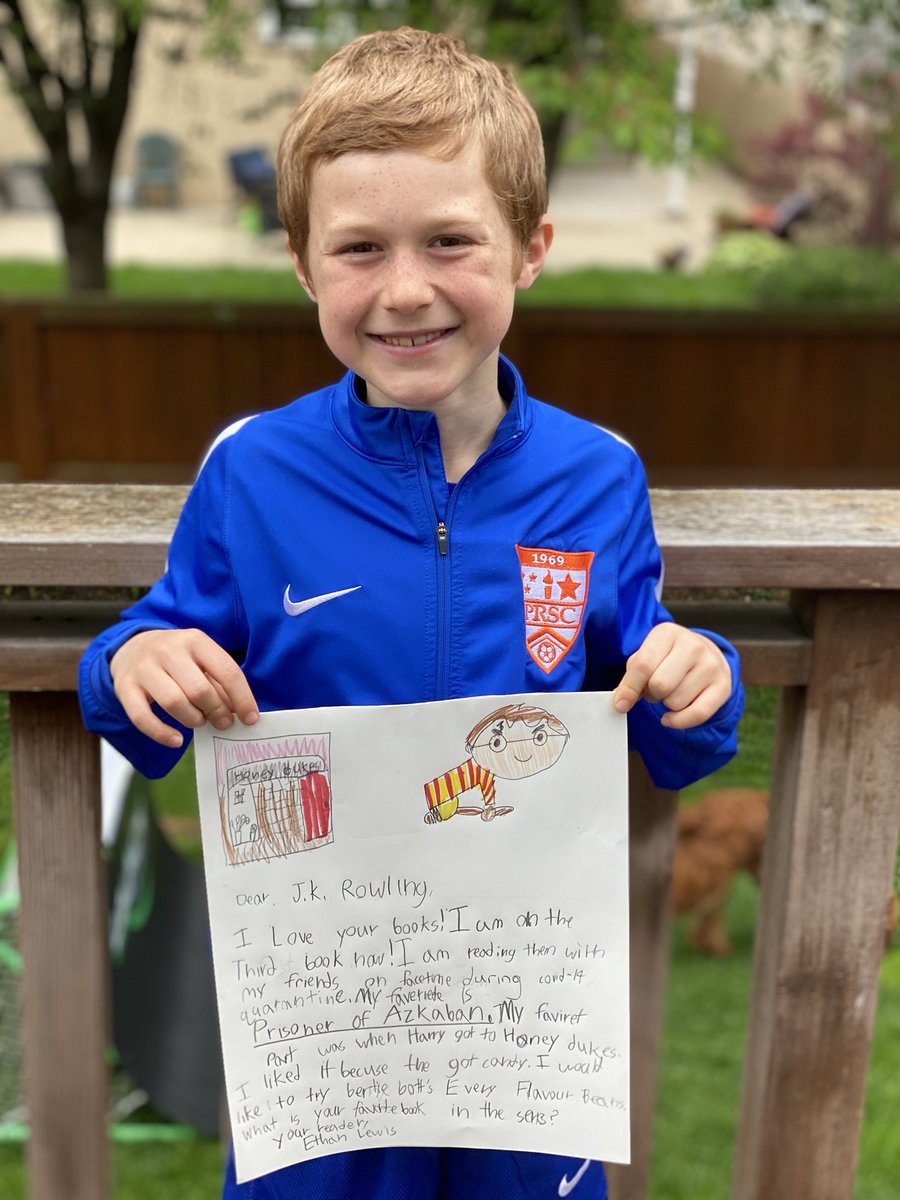 1969
PRSC
Honey dukes
Dear, J.K. Rowling,
I Love your books! I am on the
Third book now! I am reading them with
my friends on facetime during covid-19
quarantine. My faveriete is
Prisoner of Azkaban. My faviret
Part was when Harry got to Honey dukes.
I liked it becuse the got candy. I would
like to try bertie bott's Every Flavour Beans.
what is your favorite book in the seris?
your reader,
Ethan Lewis